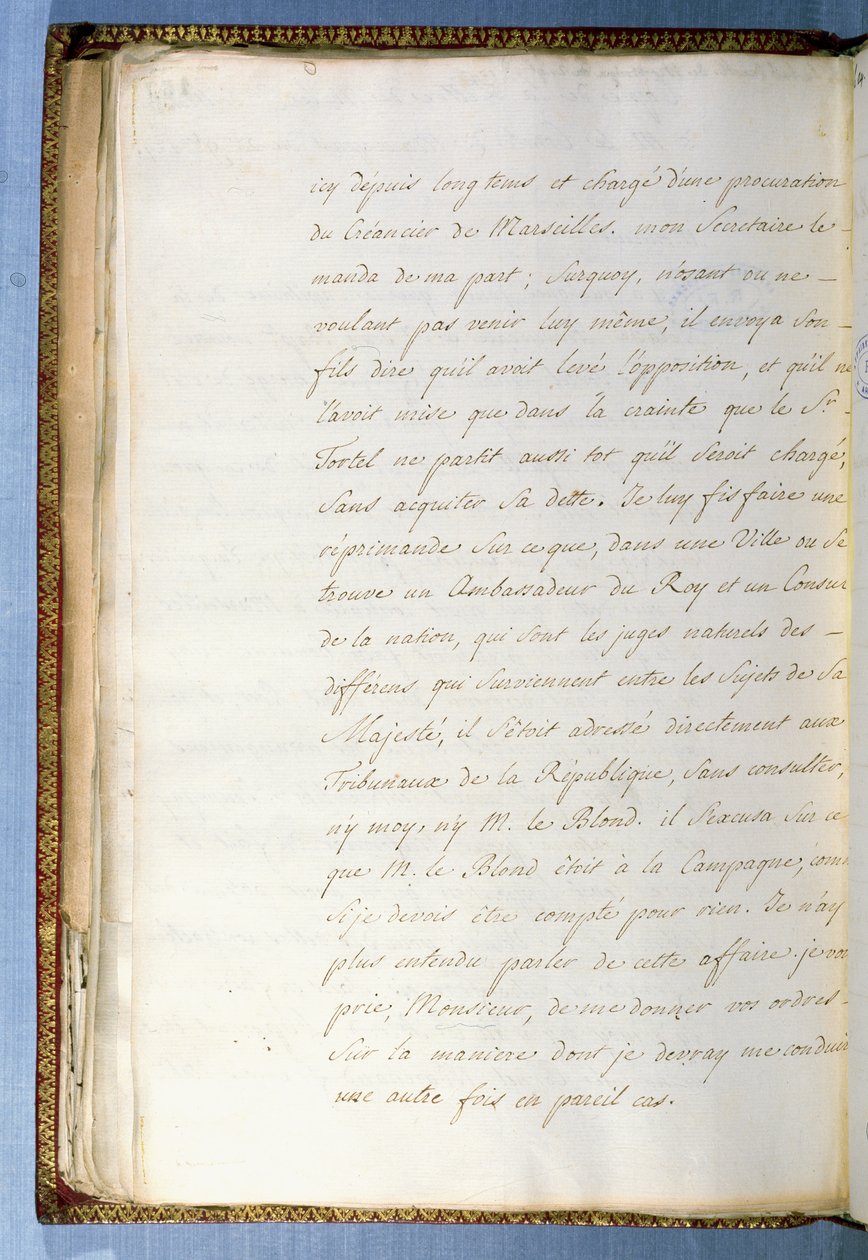 icy dépuis longtems et chargé d'une procuration
du Créancier de Marseilles. mon Secretaire le -
manda de ma part ; Surquoy, n'osant ou ne -
voulant pas venir luy même, il envoya Son -
fils dire qu'il avoit levé l'opposition, et qu'il ne
l'avoit mise que dans la crainte que le Sr. -
Tortel ne partit aussi tot qu'il Seroit chargé,
Sans acquiter Sa dette. Je luy fis faire une
réprimande Sur ce que, dans une Ville ou Se
trouve un Ambassadeur du Roy et un Consul
de la nation, qui Sont les juges naturels des -
différens qui Surviennent entre les Sujets de Sa
Majesté, il S'étoit adressé directement aux
Tribunaux de la République, Sans consulter,
n'y moy, n'y M. le Blond. il S'excusa Sur ce
que M. le Blond étoit à la Campagne, comm
Si je devois être compté pour rien. Je n'ay
plus entendu parler de cette affaire. je vou
prie, Monsieur, de me donner vos ordres -
Sur la maniere dont je devray me conduir
une autre fois en pareil cas.